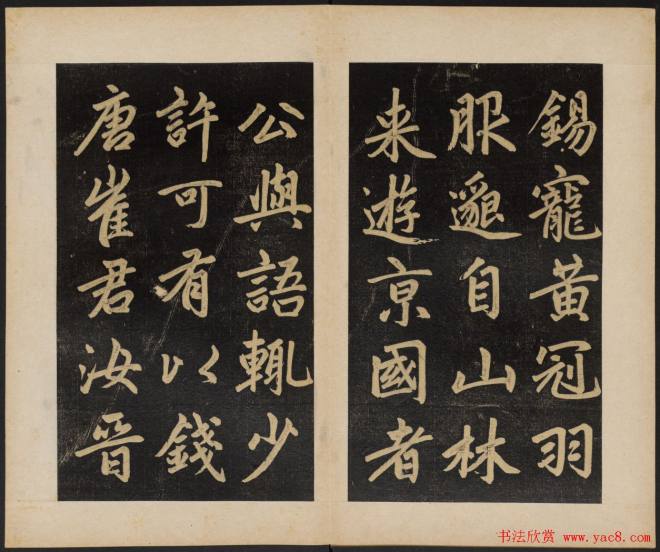 錫寵黄冠羽
服邈自山林
来遊京國者
公與語輒少
許可有以錢
唐崔君汝晋
书法欣赏 www.yac8.com